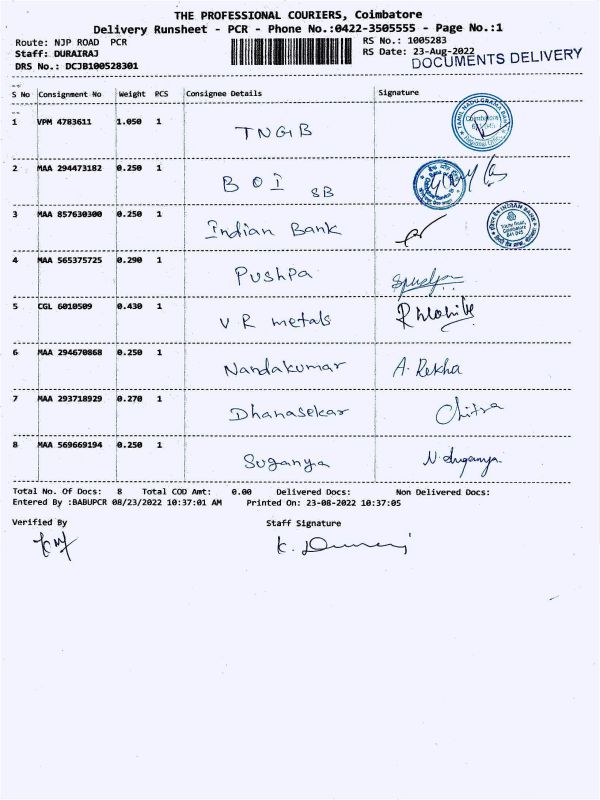 THE PROFESSIONAL COURIERS, Coimbatore
Delivery Runsheet - PCR - Phone No.:0422-3505555 - Page No.:1
Route: NJP ROAD PCR
RS No.: 1005283
Staff: DURAIRAJ
RS Date: 23-Aug-2022
DRS No.: DCJB100528301
DOCUMENTS DELIVERY
S No Consignment No Weight PCS Consignee Details Signature
1 VPM 4783611 1.050 1 TNGB
2 MAA 294473182 0.250 1 BOI SB
3 MAA 857630300 0.250 1 Indian Bank
4 MAA 565375725 0.290 1 Pushpa
5 CGL 6010509 0.430 1 V R metals
6 MAA 294670868 0.250 1 Nandakumar A. Rekha
7 MAA 293718929 0.270 1 Dhanasekar Chitra
8 MAA 569669194 0.250 1 Suganya N. Suganya
Total No. Of Docs: 8 Total COD Amt: 0.00 Delivered Docs: Non Delivered Docs:
Entered By :BABUPCR 08/23/2022 10:37:01 AM Printed On: 23-08-2022 10:37:05
Verified By Staff Signature